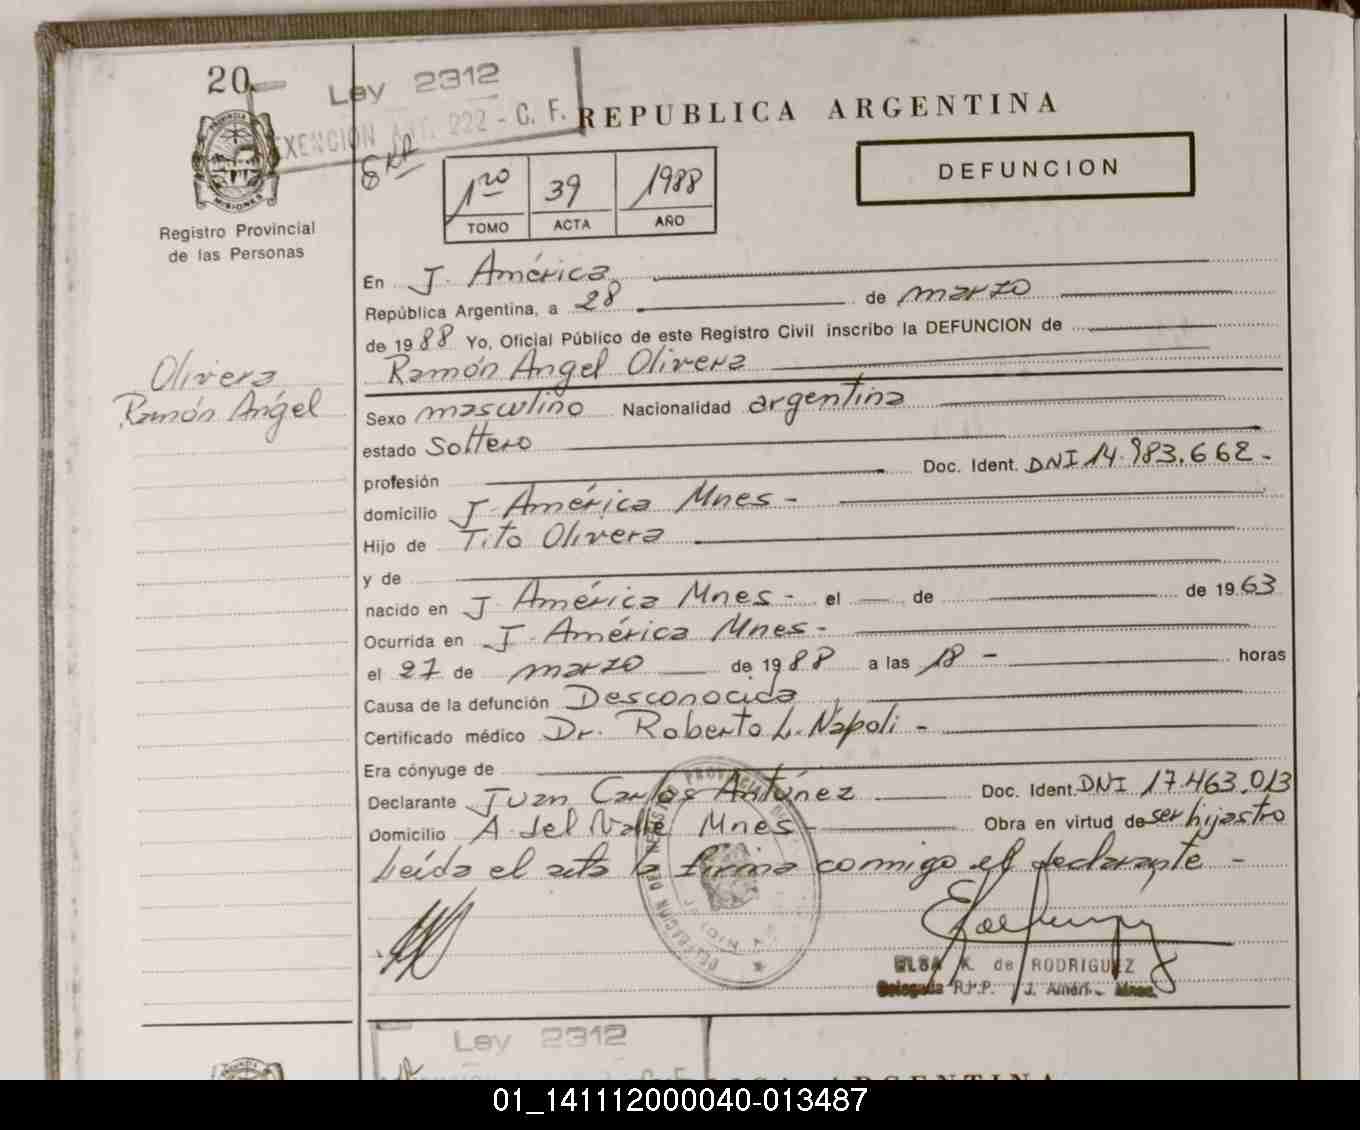 20
Ley 2312
EXENCION ART. 222 - C. F.
REPUBLICA ARGENTINA
DEFUNCION
PROVINCIA
MISIONES
Registro Provincial
de las Personas
1ro 39 1988
TOMO ACTA AÑO
En J. América
República Argentina, a 28 de marzo
de 1988 Yo, Oficial Público de este Registro Civil inscribo la DEFUNCION de
Ramón Angel Olivera
Olivera
Ramón Angel
Sexo masculino Nacionalidad argentina
estado Soltero
profesión Doc. Ident. DNI 14.983.662.-
domicilio J. América Mnes -
Hijo de Tito Olivera
y de
nacido en J. América Mnes - el de de 1963
Ocurrida en J. América Mnes -
el 27 de marzo de 1988 a las 18 - horas
Causa de la defunción Desconocida
Certificado médico Dr. Roberto L. Nápoli -
Era cónyuge de
Declarante Juan Carlos Antúnez Doc. Ident. DNI 17.463.013
Domicilio A. del Valle Mnes - Obra en virtud de ser hijastro
Leída el acta la firma comigo el declarante -
ELSA K. de RODRIGUEZ
Delegada R.P.P. J. Améri. Mnes.
Ley 2312
01_141112000040-013487